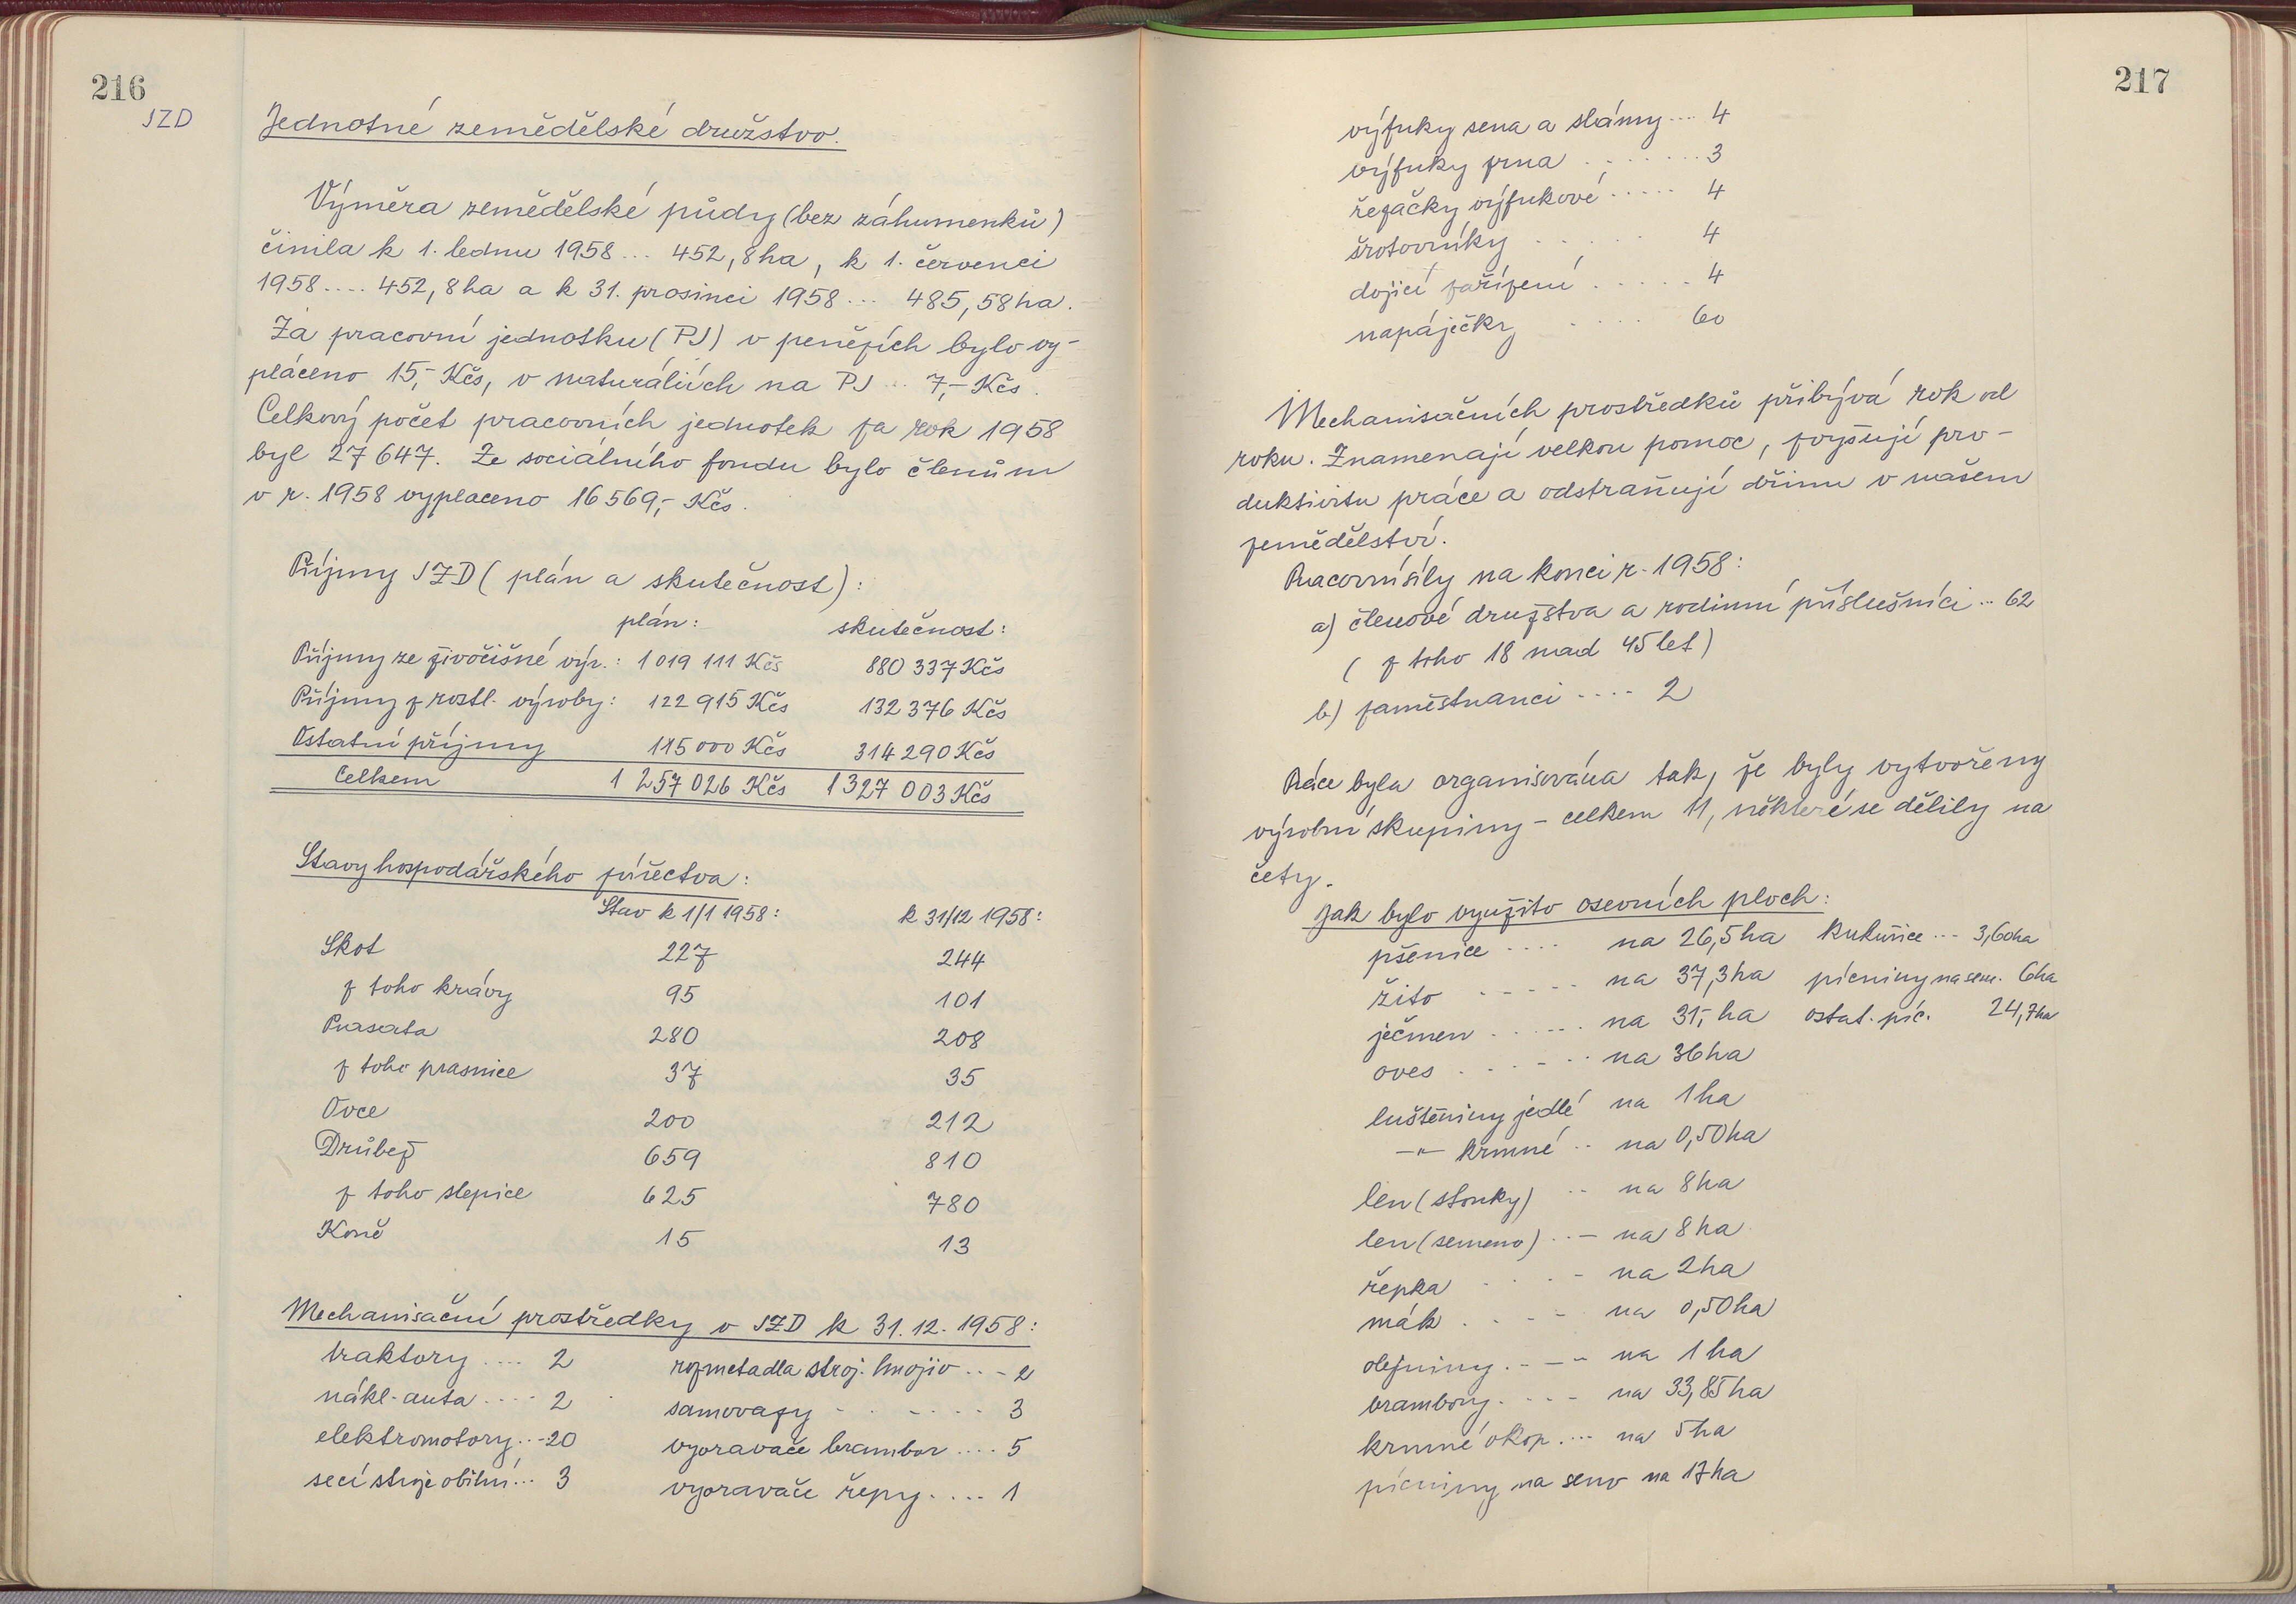 216
JZD
Jednotné zemědělské družstvo.
Výměra zemědělské půdy (bez záhumenků)
činila k 1. lednu 1958 ... 452,8 ha, k 1. červenci
1958 .... 452,8 ha a k 31. prosinci 1958 ... 485,58 ha.
Za pracovní jednotku (PJ) v penězích bylo vy-
pláceno 15,- Kčs, v naturáliích na PJ ... 7,- Kčs.
Celkový počet pracovních jednotek za rok 1958
byl 27 647. Ze sociálního fondu bylo členům
v r. 1958 vyplaceno 16 569,- Kčs.
Příjmy JZD (plán a skutečnost):
plán: skutečnost:
Příjmy ze živočišné výr.: 1 019 111 Kčs 880 337 Kčs
Příjmy z rostl. výroby: 122 915 Kčs 132 376 Kčs
Ostatní příjmy 115 000 Kčs 314 290 Kčs
Celkem 1 257 026 Kčs 1 327 003 Kčs
Stavy hospodářského zvířectva:
Stav k 1/1 1958: k 31/12 1958:
Skot 227 244
z toho krávy 95 101
Prasata 280 208
z toho prasnice 37 35
Ovce 200 212
Drůbež 659 810
z toho slepice 625 780
Koně 15 13
Mechanisační prostředky v JZD k 31.12.1958:
traktory .... 2 rozmetadla stroj. hnojiv ... 2
nákl. auta .... 2 samovazy ...... 3
elektromotory ... 20 vyoravače brambor .... 5
secí stroje obilní ... 3 vyoravače řepy .... 1
217
výfuky sena a slámy ... 4
výfuky zrna ....... 3
řezačky výfukové ..... 4
šrotovníky ..... 4
dojicí zařízení ..... 4
napáječky .... 60
Mechanisačních prostředků přibývá rok od
roku. Znamenají velkou pomoc, zvyšují pro-
duktivitu práce a odstraňují dřinu v našem
zemědělství.
Pracovní síly na konci r. 1958:
a) členové družstva a rodinní příslušníci .. 62
( z toho 18 nad 45 let)
b) zaměstnanci .... 2
Práce byla organisována tak, že byly vytvořeny
výrobní skupiny - celkem 11, některé se dělily na
čety.
Jak bylo využito osevních ploch:
pšenice .... na 26,5 ha kukuřice ... 3,60 ha
žito ..... na 37,3 ha pícniny na sem. 6 ha
ječmen ...... na 31,- ha ostat. píc. 24,7 ha
oves ..... na 36 ha
luštěniny jedlé na 1 ha
-"- krmné .. na 0,50 ha
len (stonky) .. na 8 ha
len (semeno) ... na 8 ha
řepka .... na 2 ha
mák .... na 0,50 ha
olejniny .... na 1 ha
brambory .... na 33,85 ha
krmné okop. ... na 5 ha
pícniny na seno na 17 ha